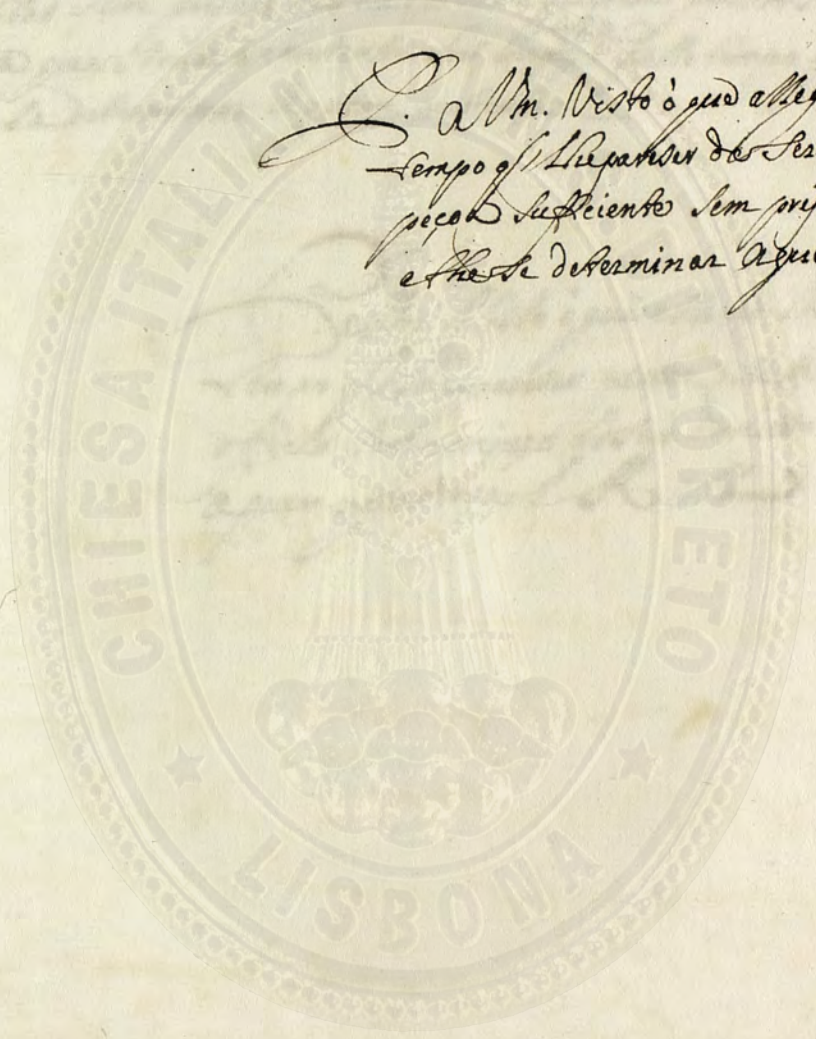 P. a Vm. Visto o que alleg
tempo q lhe pareser da Ser
peçoa sufficiente sem prej
athe se determinar a que
CHIESA ITALIANA
LORETO
LISBONA